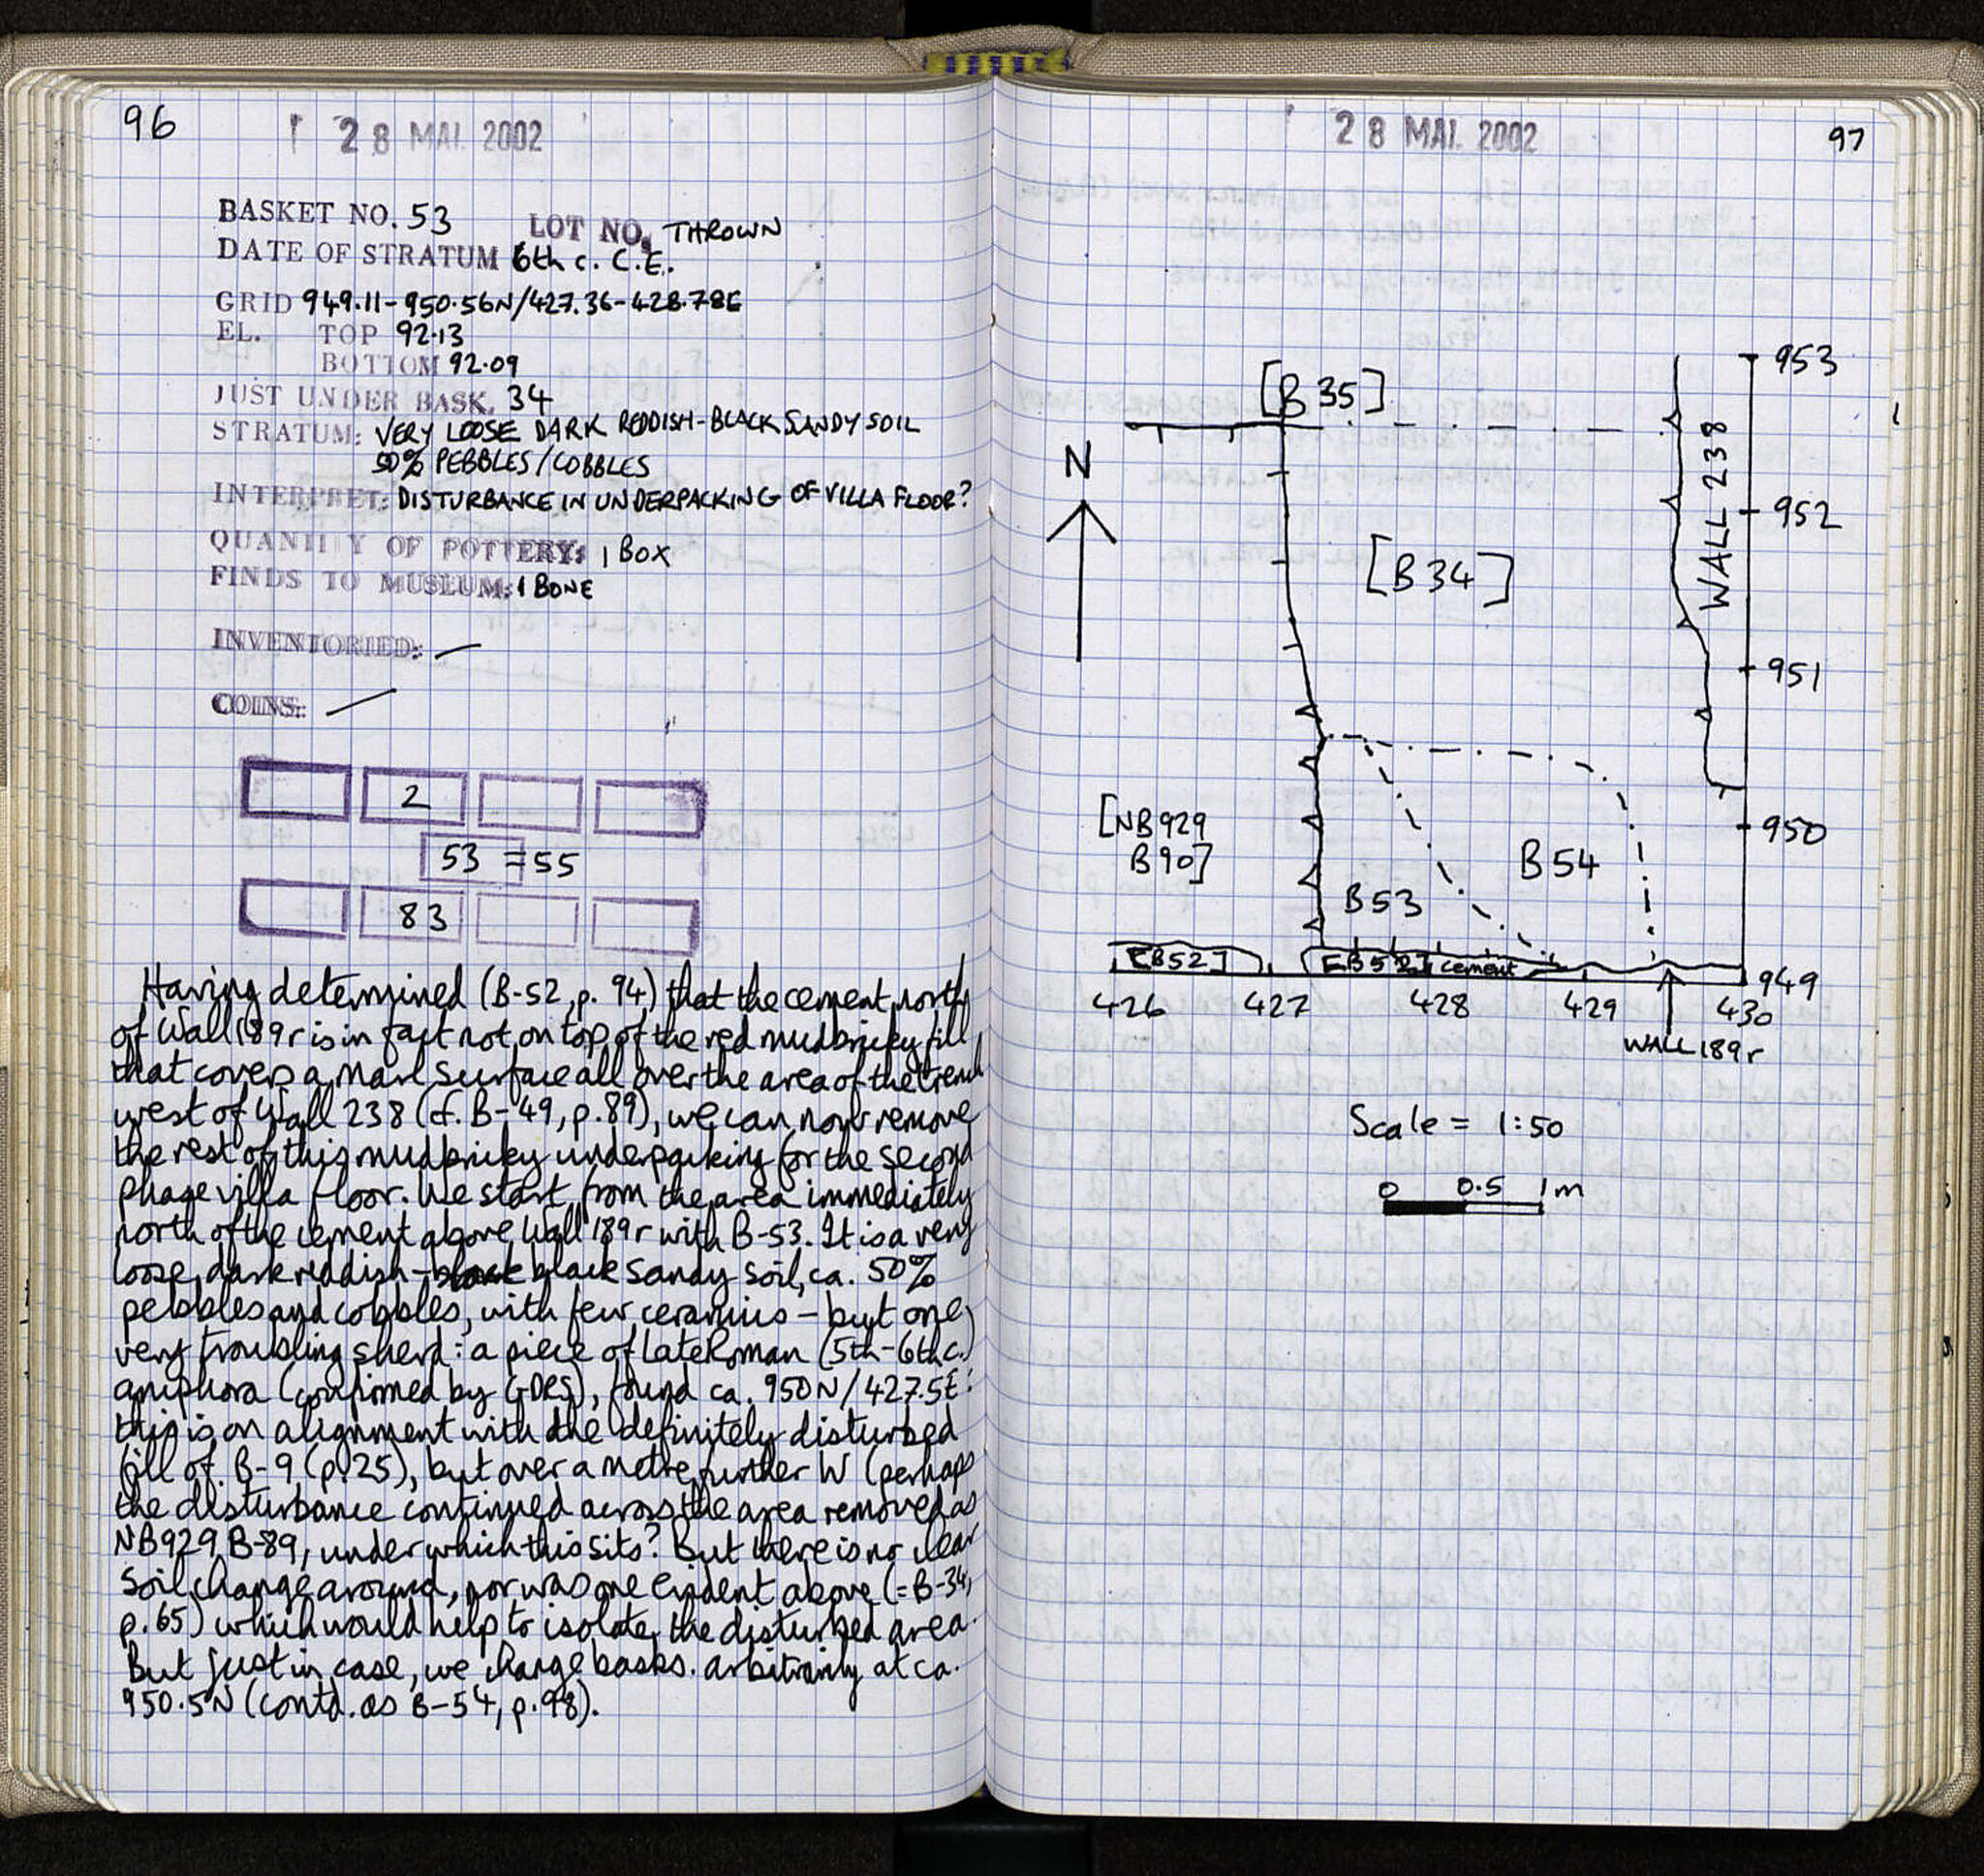 96
28 MAI 2002
BASKET NO. 53 LOT NO. THROWN
DATE OF STRATUM 6th c. C.E.
GRID 949.11-950.56N/427.36-428.78E
EL. TOP 92.13
BOTTOM 92.09
JUST UNDER BASK. 34
STRATUM: VERY LOOSE DARK REDDISH-BLACK SANDY SOIL
50% PEBBLES/COBBLES
INTERPRET: DISTURBANCE IN UNDERPACKING OF VILLA FLOOR?
QUANTITY OF POTTERY: 1 BOX
FINDS TO MUSEUM: 1 BONE
INVENTORIED: —
COINS: —
2
53 = 55
83
Having determined (B-52, p. 94) that the cement north
of Wall 189r is in fact not on top of the red mudbricky fill
that covers a marl surface all over the area of the trench
west of Wall 238 (cf. B-49, p.89), we can now remove
the rest of this mudbricky underpacking for the second
phase villa floor. We start from the area immediately
north of the cement above Wall 189r with B-53. It is a very
loose, dark reddish-black sandy soil, ca. 50%
pebbles and cobbles, with few ceramics – but one
very troubling sherd: a piece of Late Roman (5th-6th c.)
amphora (confirmed by GDRS), found ca. 950N/427.5E:
this is on alignment with the definitely disturbed
fill of B-9 (p.25), but over a metre further W (perhaps
the disturbance continued across the area removed as
NB929 B-89, under which this sits? But there is no clear
soil change around, nor was one evident above (=B-34,
p.65) which would help to isolate the disturbed area.
But just in case, we change basks. arbitrarily at ca.
950.5N (contd. as B-54, p.98).
28 MAI 2002
97
[B 35]
953
N
WALL 238
952
[B 34]
951
[NB929
B90]
950
B54
B53
[B52]
[B52] cement
949
426 427 428 429 430
WALL 189r
Scale = 1:50
0 0.5 1m